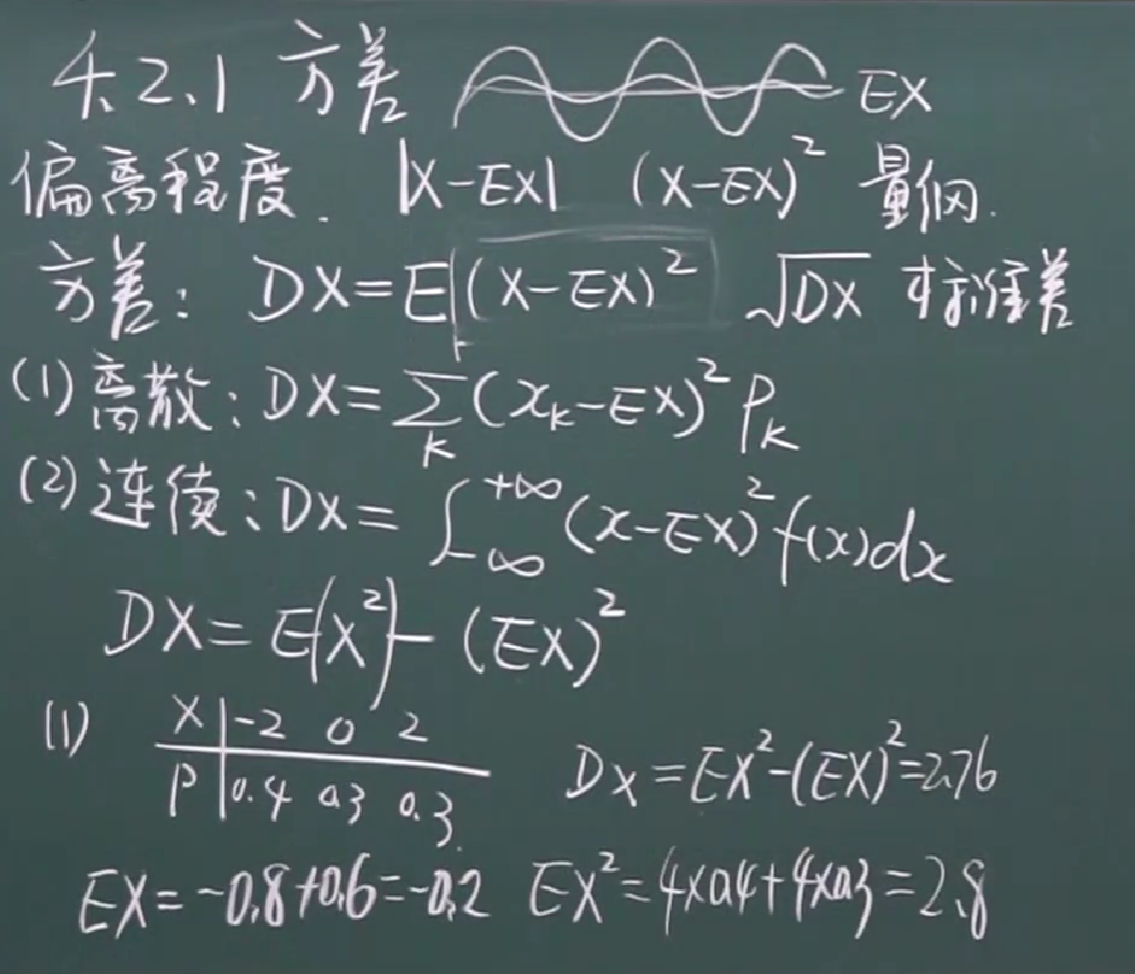 4.2.1 方差 EX
偏离程度. |X-EX| (X-EX)² 量纲.
方差: DX=E[(X-EX)² √DX 标准差
(1) 离散: DX=∑ₖ(xₖ-EX)² Pₖ
(2) 连续: DX=∫₋∞⁺∞(x-EX)²f(x)dx
DX=E(X²)-(EX)²
(1) X | -2 0 2
P | 0.4 0.3 0.3 DX=EX²-(EX)²=2.76
EX=-0.8+0.6=-0.2 EX²=4×0.4+4×0.3=2.8